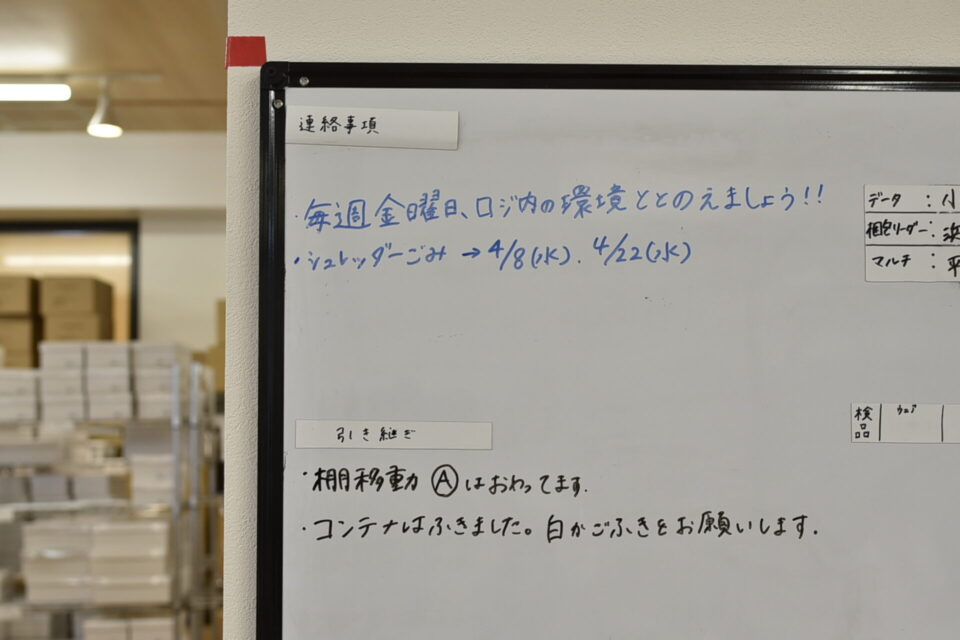 連絡事項
・毎週金曜日、ロジ内の環境ととのえましょう!!
・シュレッダーごみ → 4/8(水). 4/22(水)
データ :
梱包リーダー:
マルチ :
検品
ウェア
引き継ぎ
・棚移動 Ⓐ はおわってます.
・コンテナはふきました。白かごふきをお願いします.